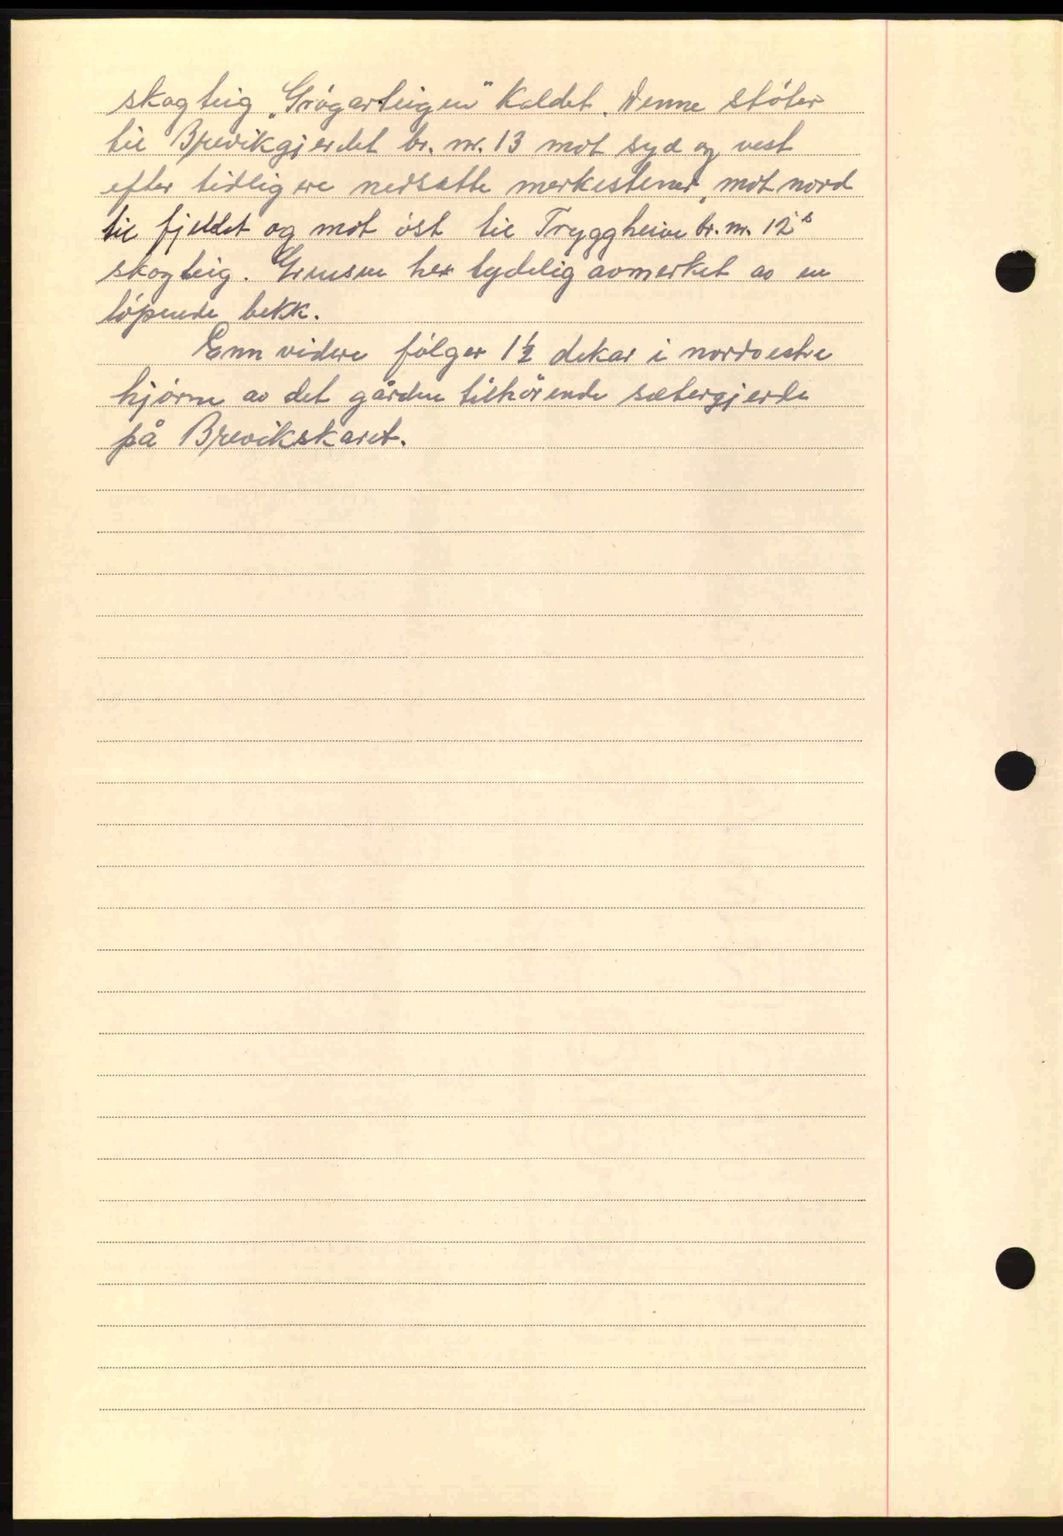 skogteig „Grógarteigen" kaldet. Denne stöter
til Brevikgjerdet br. nr. 13 mot syd og vest
efter tidligere nedsatte merkestener, mot nord
til fjeldet og mot öst til Tryggheim br. nr. 12s
skogteig. Grensen her tydelig avmerket av en
löpende bekk.
Enn videre fölger 1½ dekar i nordvestre
hjörne av det gården tilhörende sætergjerde
på Brevikskaret.